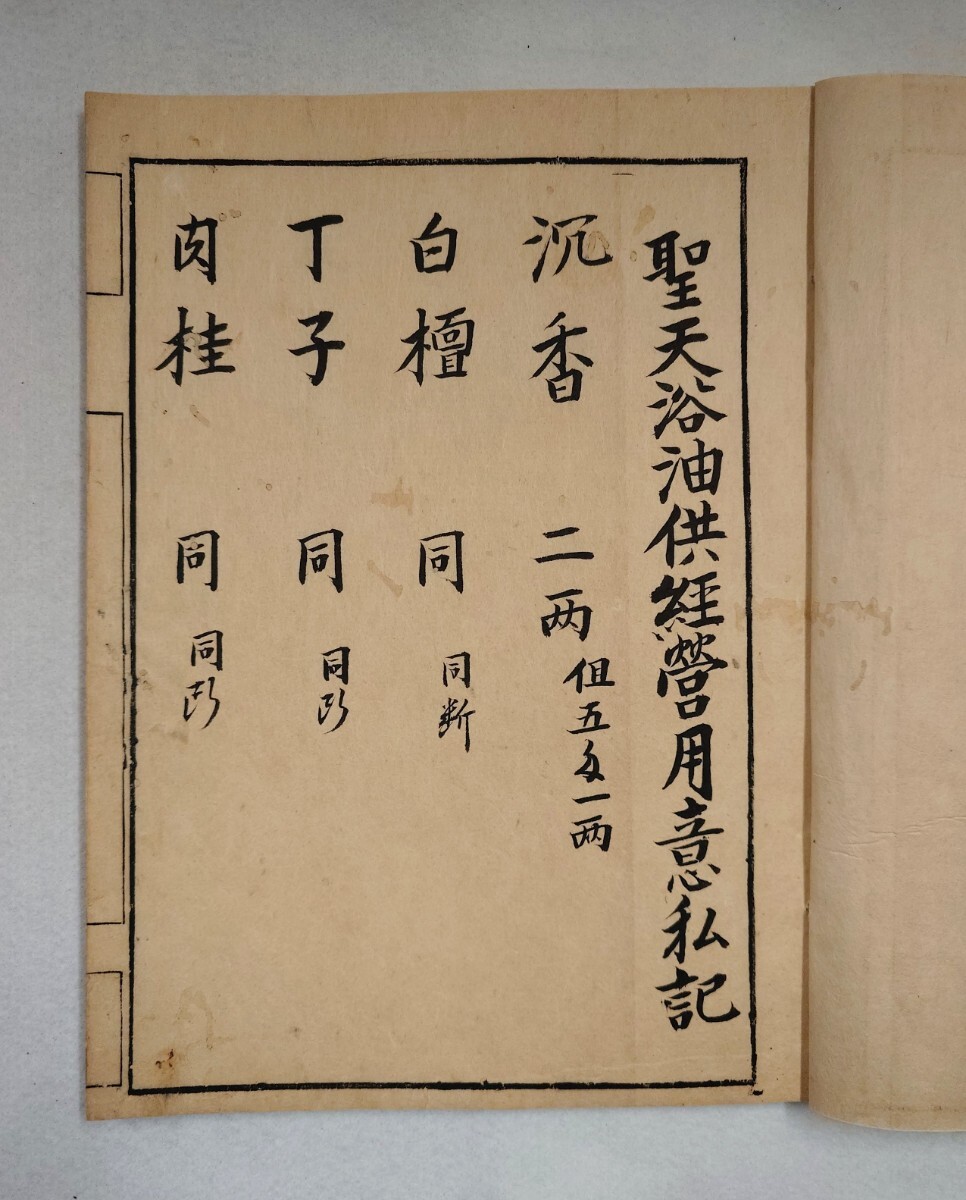 聖天浴油供經營用意私記
沉香 二两 但五匁一两
白檀 同 同断
丁子 同 同断
肉桂 同 同断